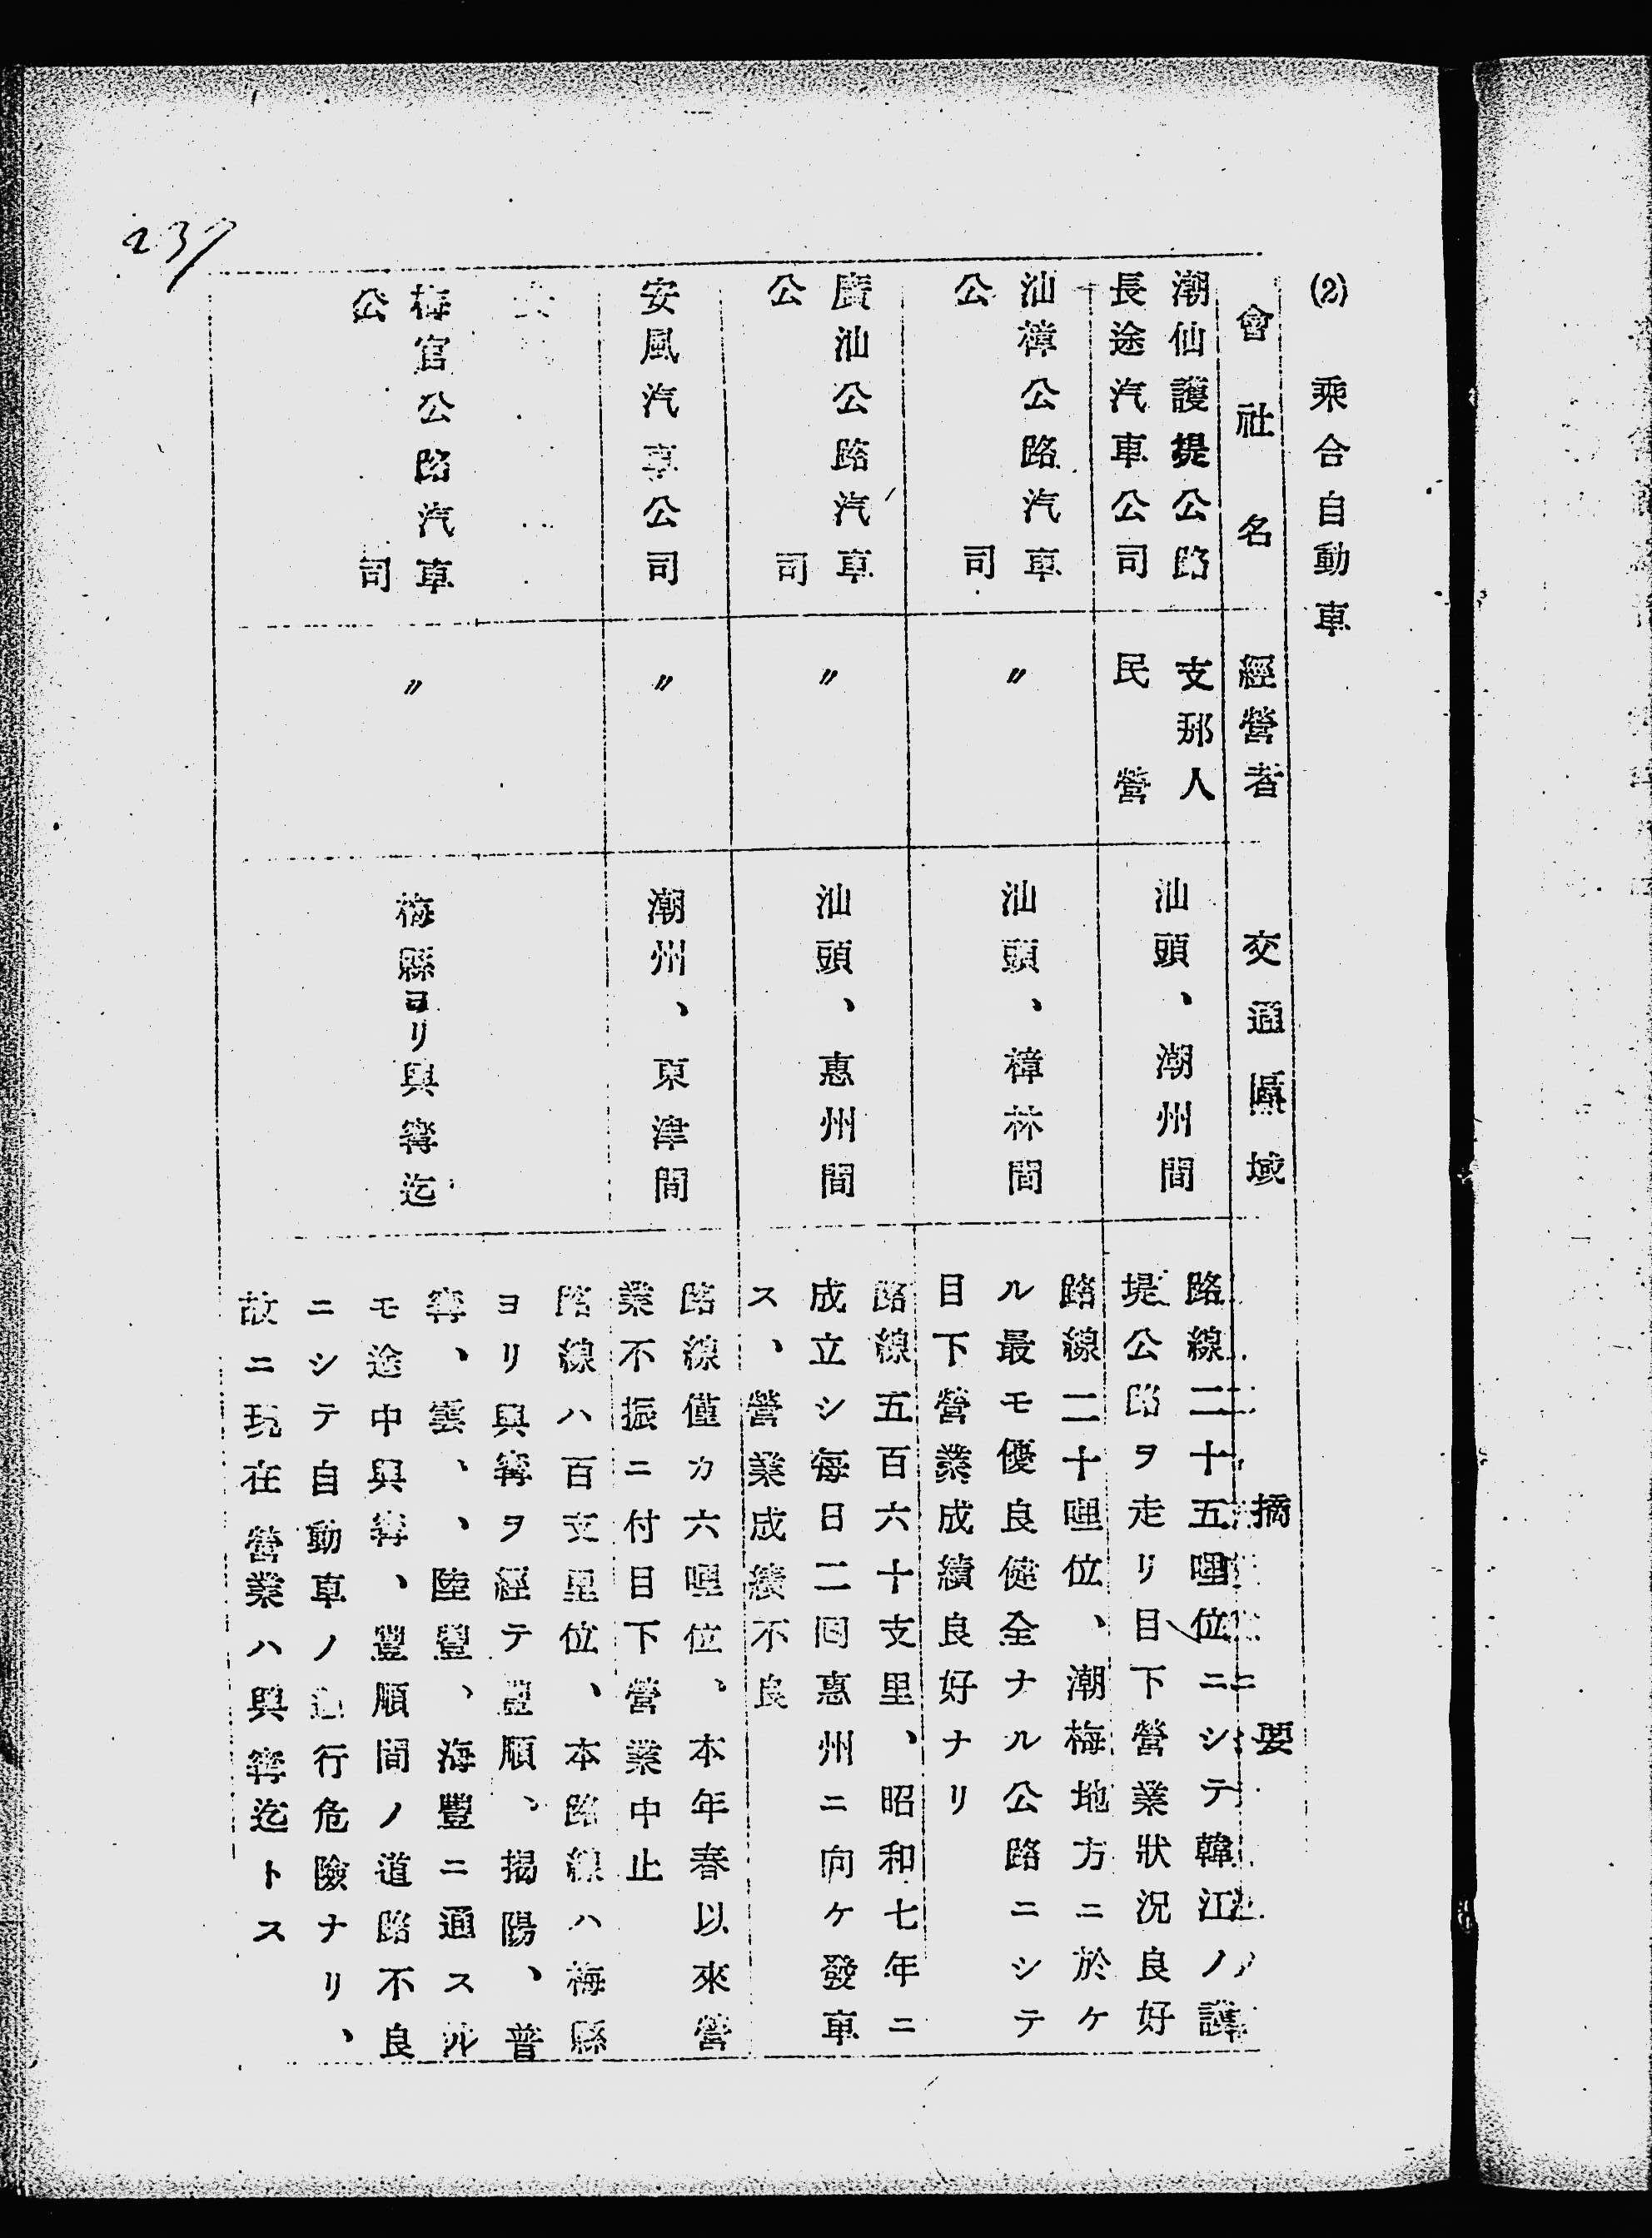 237
(2) 乘合自動車
會社名
經營者
交通區域
摘要
潮仙護提公路
長途汽車公司
支那人
民營
汕頭、潮州間
路線二十五哩位ニシテ韓江ノ護
堤公路ヲ走リ目下營業狀況良好
汕樟公路汽車
公司
〃
汕頭、樟林間
路線二十哩位、潮梅地方ニ於ケ
ル最モ優良健全ナル公路ニシテ
目下營業成績良好ナリ
廣汕公路汽車
公司
〃
汕頭、惠州間
路線五百六十支里、昭和七年ニ
成立シ每日二囘惠州ニ向ケ發車
ス、營業成績不良
安風汽車公司
〃
潮州、東津間
路線僅カ六哩位、本年春以來營
業不振ニ付目下營業中止
梅官公路汽車
公司
〃
梅縣ヨリ興寧迄
路線ハ百支里位、本路線ハ梅縣
ヨリ興寧ヲ經テ豐順、揭陽、普
寧、雲、、陸豐、海豐ニ通スル
モ途中興寧、豐順間ノ道路不良
ニシテ自動車ノ行危險ナリ、
故ニ現在營業ハ興寧迄トス